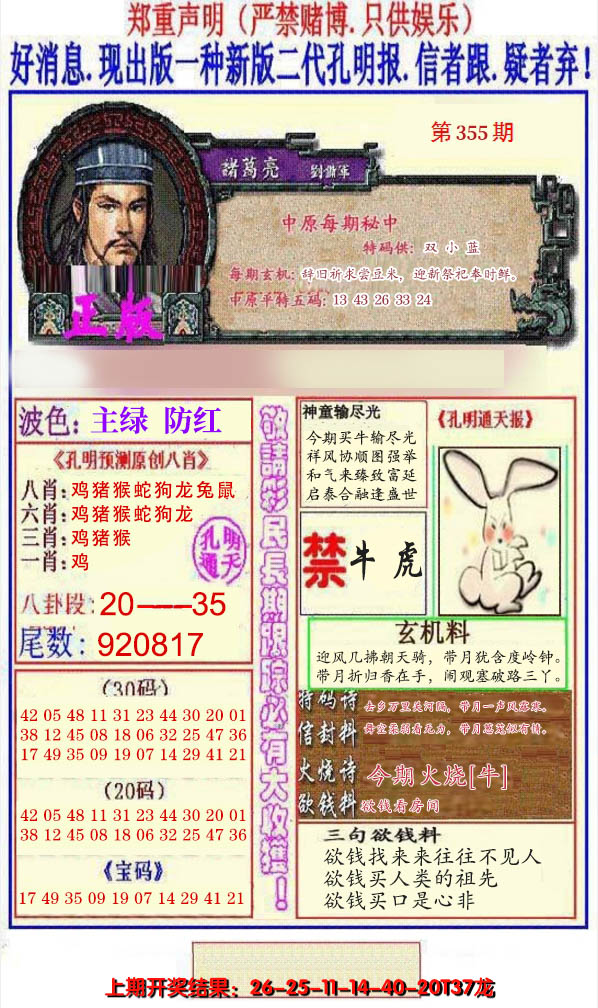 郑重声明（严禁赌博.只供娱乐）
好消息.现出版一种新版二代孔明报.信者跟.疑者弃！
第355期
諸葛亮 劉備軍
中原每期秘中
特码供：双小蓝
每期玄机：辞旧祈求尝豆米，迎新祭祀奉时鲜。
中原平特五码：13 43 26 33 24
正版
波色：主绿 防红
《孔明预测原创八肖》
八肖：鸡猪猴蛇狗龙兔鼠
六肖：鸡猪猴蛇狗龙
三肖：鸡猪猴
一肖：鸡
孔明通天
八卦段：20——35
尾数：920817
（30码）
42 05 48 11 31 23 44 30 20 01
38 12 45 08 18 06 32 25 47 36
17 49 35 09 19 07 14 29 41 21
（20码）
42 05 48 11 31 23 44 30 20 01
38 12 45 08 18 06 32 25 47 36
《宝码》
17 49 35 09 19 07 14 29 41 21
敬請彩民長期跟踪必有大收獲！
神童输尽光
今期买牛输尽光
祥风协顺图强举
和气来臻致富延
启泰合融逢盛世
《孔明通天报》
禁 牛 虎
玄机料
迎风几拂朝天骑，带月犹含度岭钟。
带月折归香在手，闹观塞破路三丫。
特码诗 去乡万里关河隔，带月一声风露寒。
信封料 舞空柔弱看无力，带月葱茏似有情。
火烧诗 今期火烧[牛]
欲钱料 欲钱看房间
三句欲钱料
欲钱找来来往往不见人
欲钱买人类的祖先
欲钱买口是心非
上期开奖结果：26-25-11-14-40-20T37龙